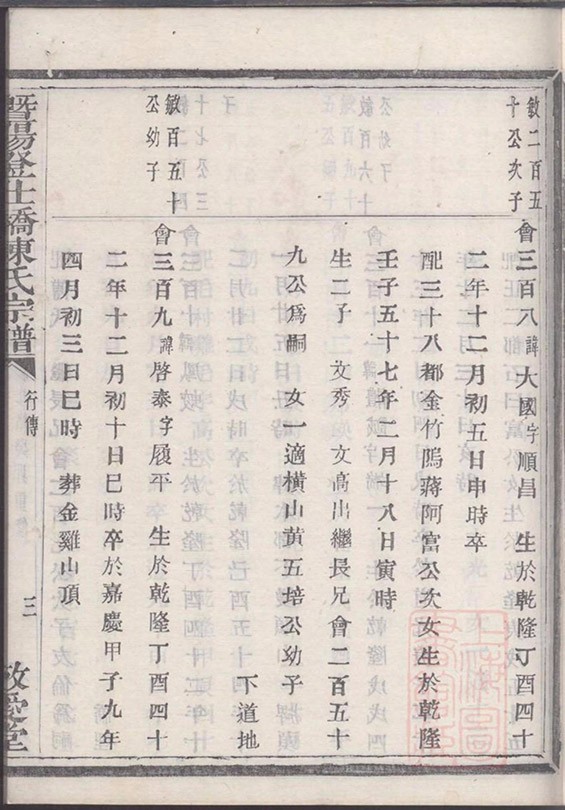 敏二百五
十公次子
會三百八諱大國字順昌 生於乾隆丁酉四十
二年十二月初五日申時卒
配三十八都金竹隖蔣阿富公次女生於乾隆
壬子五十七年二月十八日寅時
生二子 文秀 文高出繼長兄會二百五十
九公為嗣 女一適橫山黃五培公幼子
下道地
敏百五十
公幼子
會三百九諱啓泰字履平 生於乾隆丁酉四十
二年十二月初十日巳時卒於嘉慶甲子九年
四月初三日巳時 葬金雞山頂
暨陽登仕橋陳氏宗譜 行傳 三 敬愛堂